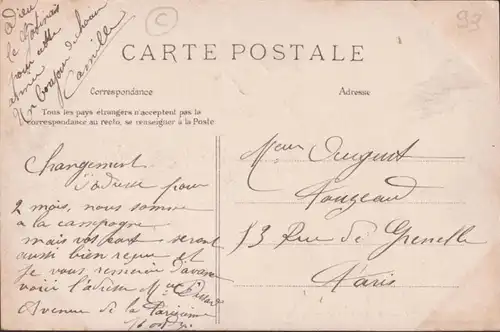 adieu
le
pour cette
année
Un bonjour de
Camille
C
93
CARTE POSTALE
Correspondance
Adresse
Tous les pays étrangers n'acceptent pas la
correspondance au recto, se renseigner à la Poste
Changement
d'adresse pour
2 mois, nous somme
a la campagne
mais vos cart seront
aussi bien reçue et
je vous remercie d'avance
voici l'adresse Mme
Avenue de la
Auguste
13 Rue de Grenelle
Paris